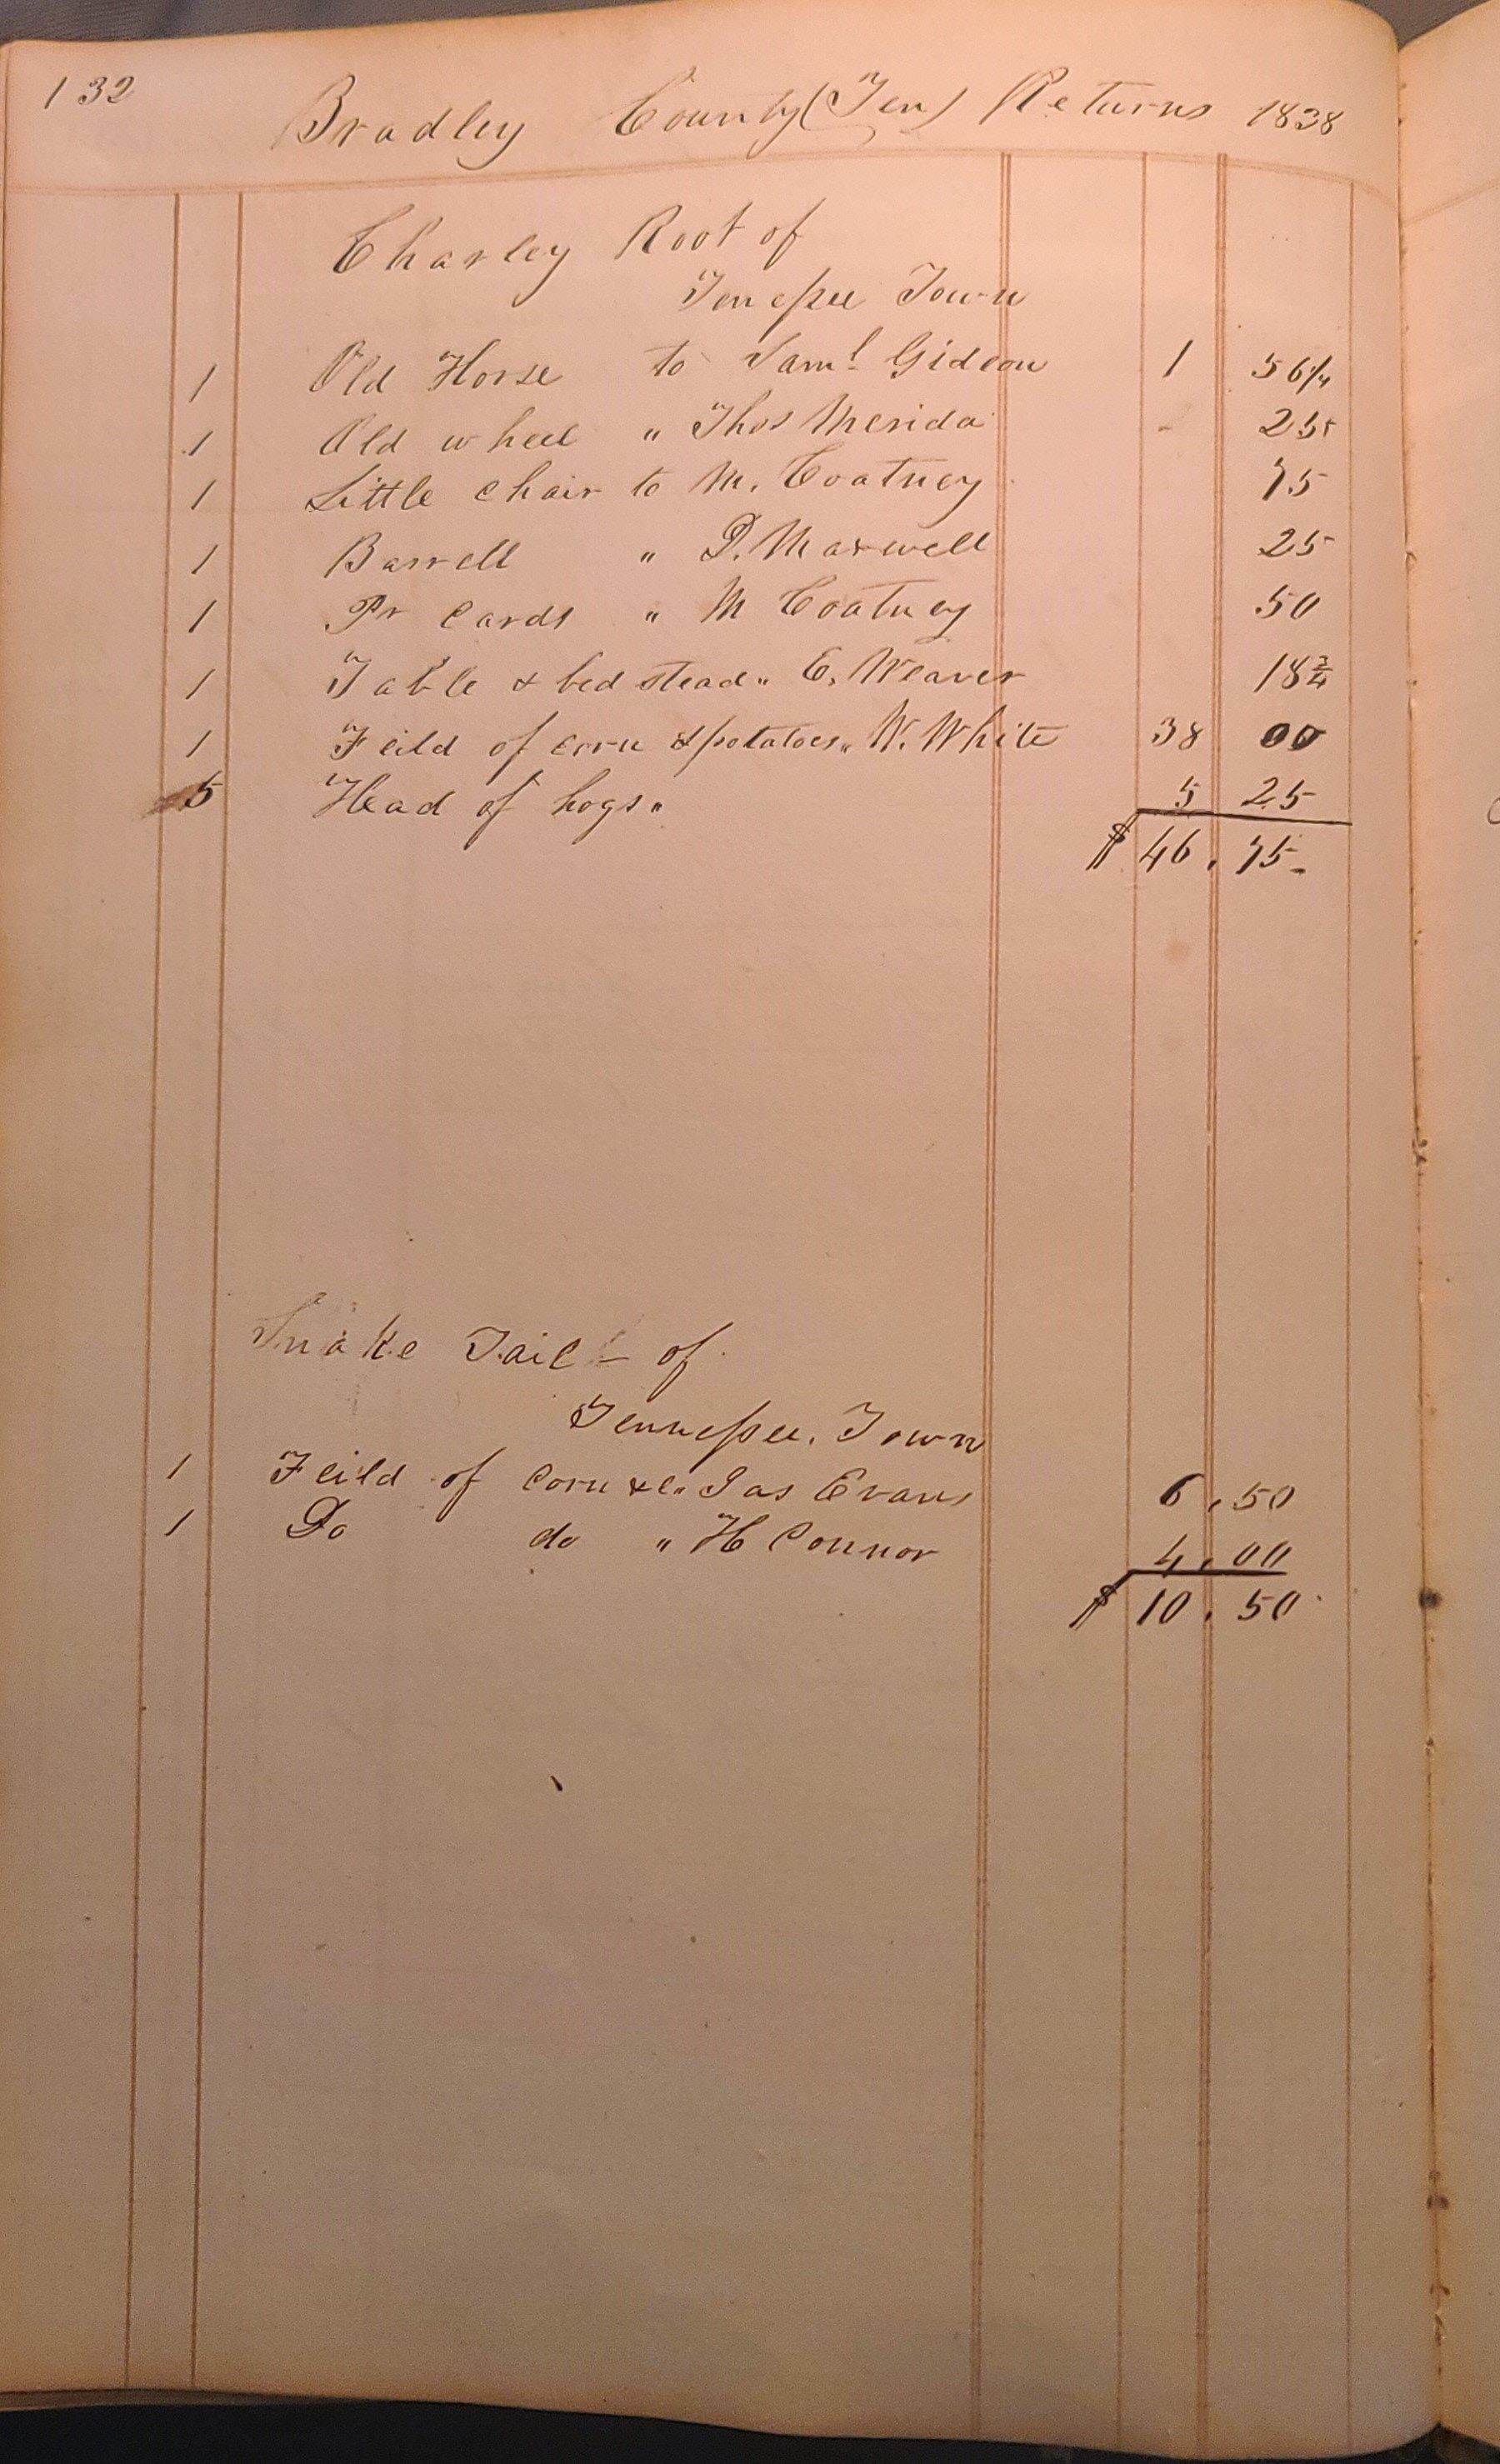 132
Bradley County (Ten) Returns 1838
Charley Root of
Tenessee Town
1 Old Horse to Saml Gideon 1 56 1/4
1 Old wheel " Thos Merida - 25
1 Little chair to M. Coatney 75
1 Barrell " D. Maxwell 25
1 Pr Cards " M Coatney 50
1 Table & bed stead " E. Weaver 18 3/4
1 Feild of corn & potatoes " W. White 38 00
5 Head of hogs " 5 25
$ 46. 75
Snake Tail - of
Tennessee. Town
1 Feild of Corn &c " Jas Evans 6. 50
1 Do do " H Connor 4. 00
$ 10. 50